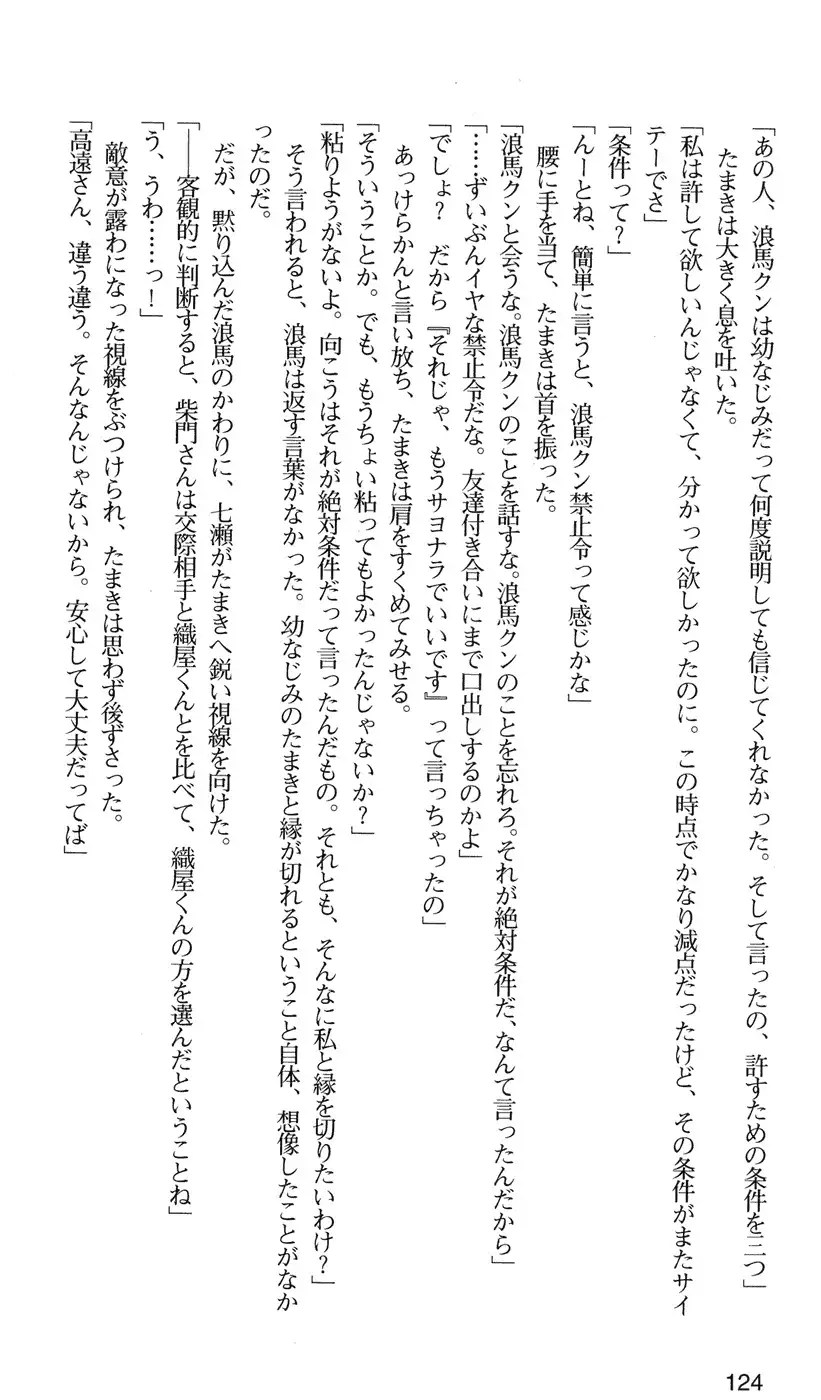 「あの人、浪馬クンは幼なじみだって何度説明しても信じてくれなかった。そして言ったの、許すための条件を三つ」
たまきは大きく息を吐いた。
「私は許して欲しいんじゃなくて、分かって欲しかったのに。この時点でかなり減点だったけど、その条件がまたサイ
テーでさ」
「条件って？」
「んーとね、簡単に言うと、浪馬クン禁止令って感じかな」
腰に手を当て、たまきは首を振った。
「浪馬クンと会うな。浪馬クンのことを話すな。浪馬クンのことを忘れろ。それが絶対条件だ、なんて言ったんだから」
「……ずいぶんイヤな禁止令だな。友達付き合いにまで口出しするのかよ」
「でしょ？　だから『それじゃ、もうサヨナラでいいです』って言っちゃったの」
あっけらかんと言い放ち、たまきは肩をすくめてみせる。
「そういうことか。でも、もうちょい粘ってもよかったんじゃないか？」
「粘りようがないよ。向こうはそれが絶対条件だって言ったんだもの。それとも、そんなに私と縁を切りたいわけ？」
そう言われると、浪馬は返す言葉がなかった。幼なじみのたまきと縁が切れるということ自体、想像したことがなか
ったのだ。
だが、黙り込んだ浪馬のかわりに、七瀬がたまきへ鋭い視線を向けた。
「――客観的に判断すると、柴門さんは交際相手と織屋くんとを比べて、織屋くんの方を選んだということね」
「う、うわ……っ！」
敵意が露わになった視線をぶつけられ、たまきは思わず後ずさった。
「高遠さん、違う違う。そんなんじゃないから。安心して大丈夫だってば」
124